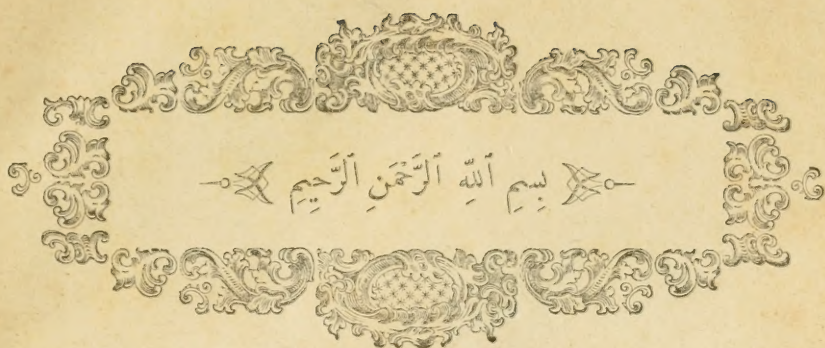 بِسِمِ ٱللّهِ ٱلرَّحْمَنِ ٱلرَّحِيمِ